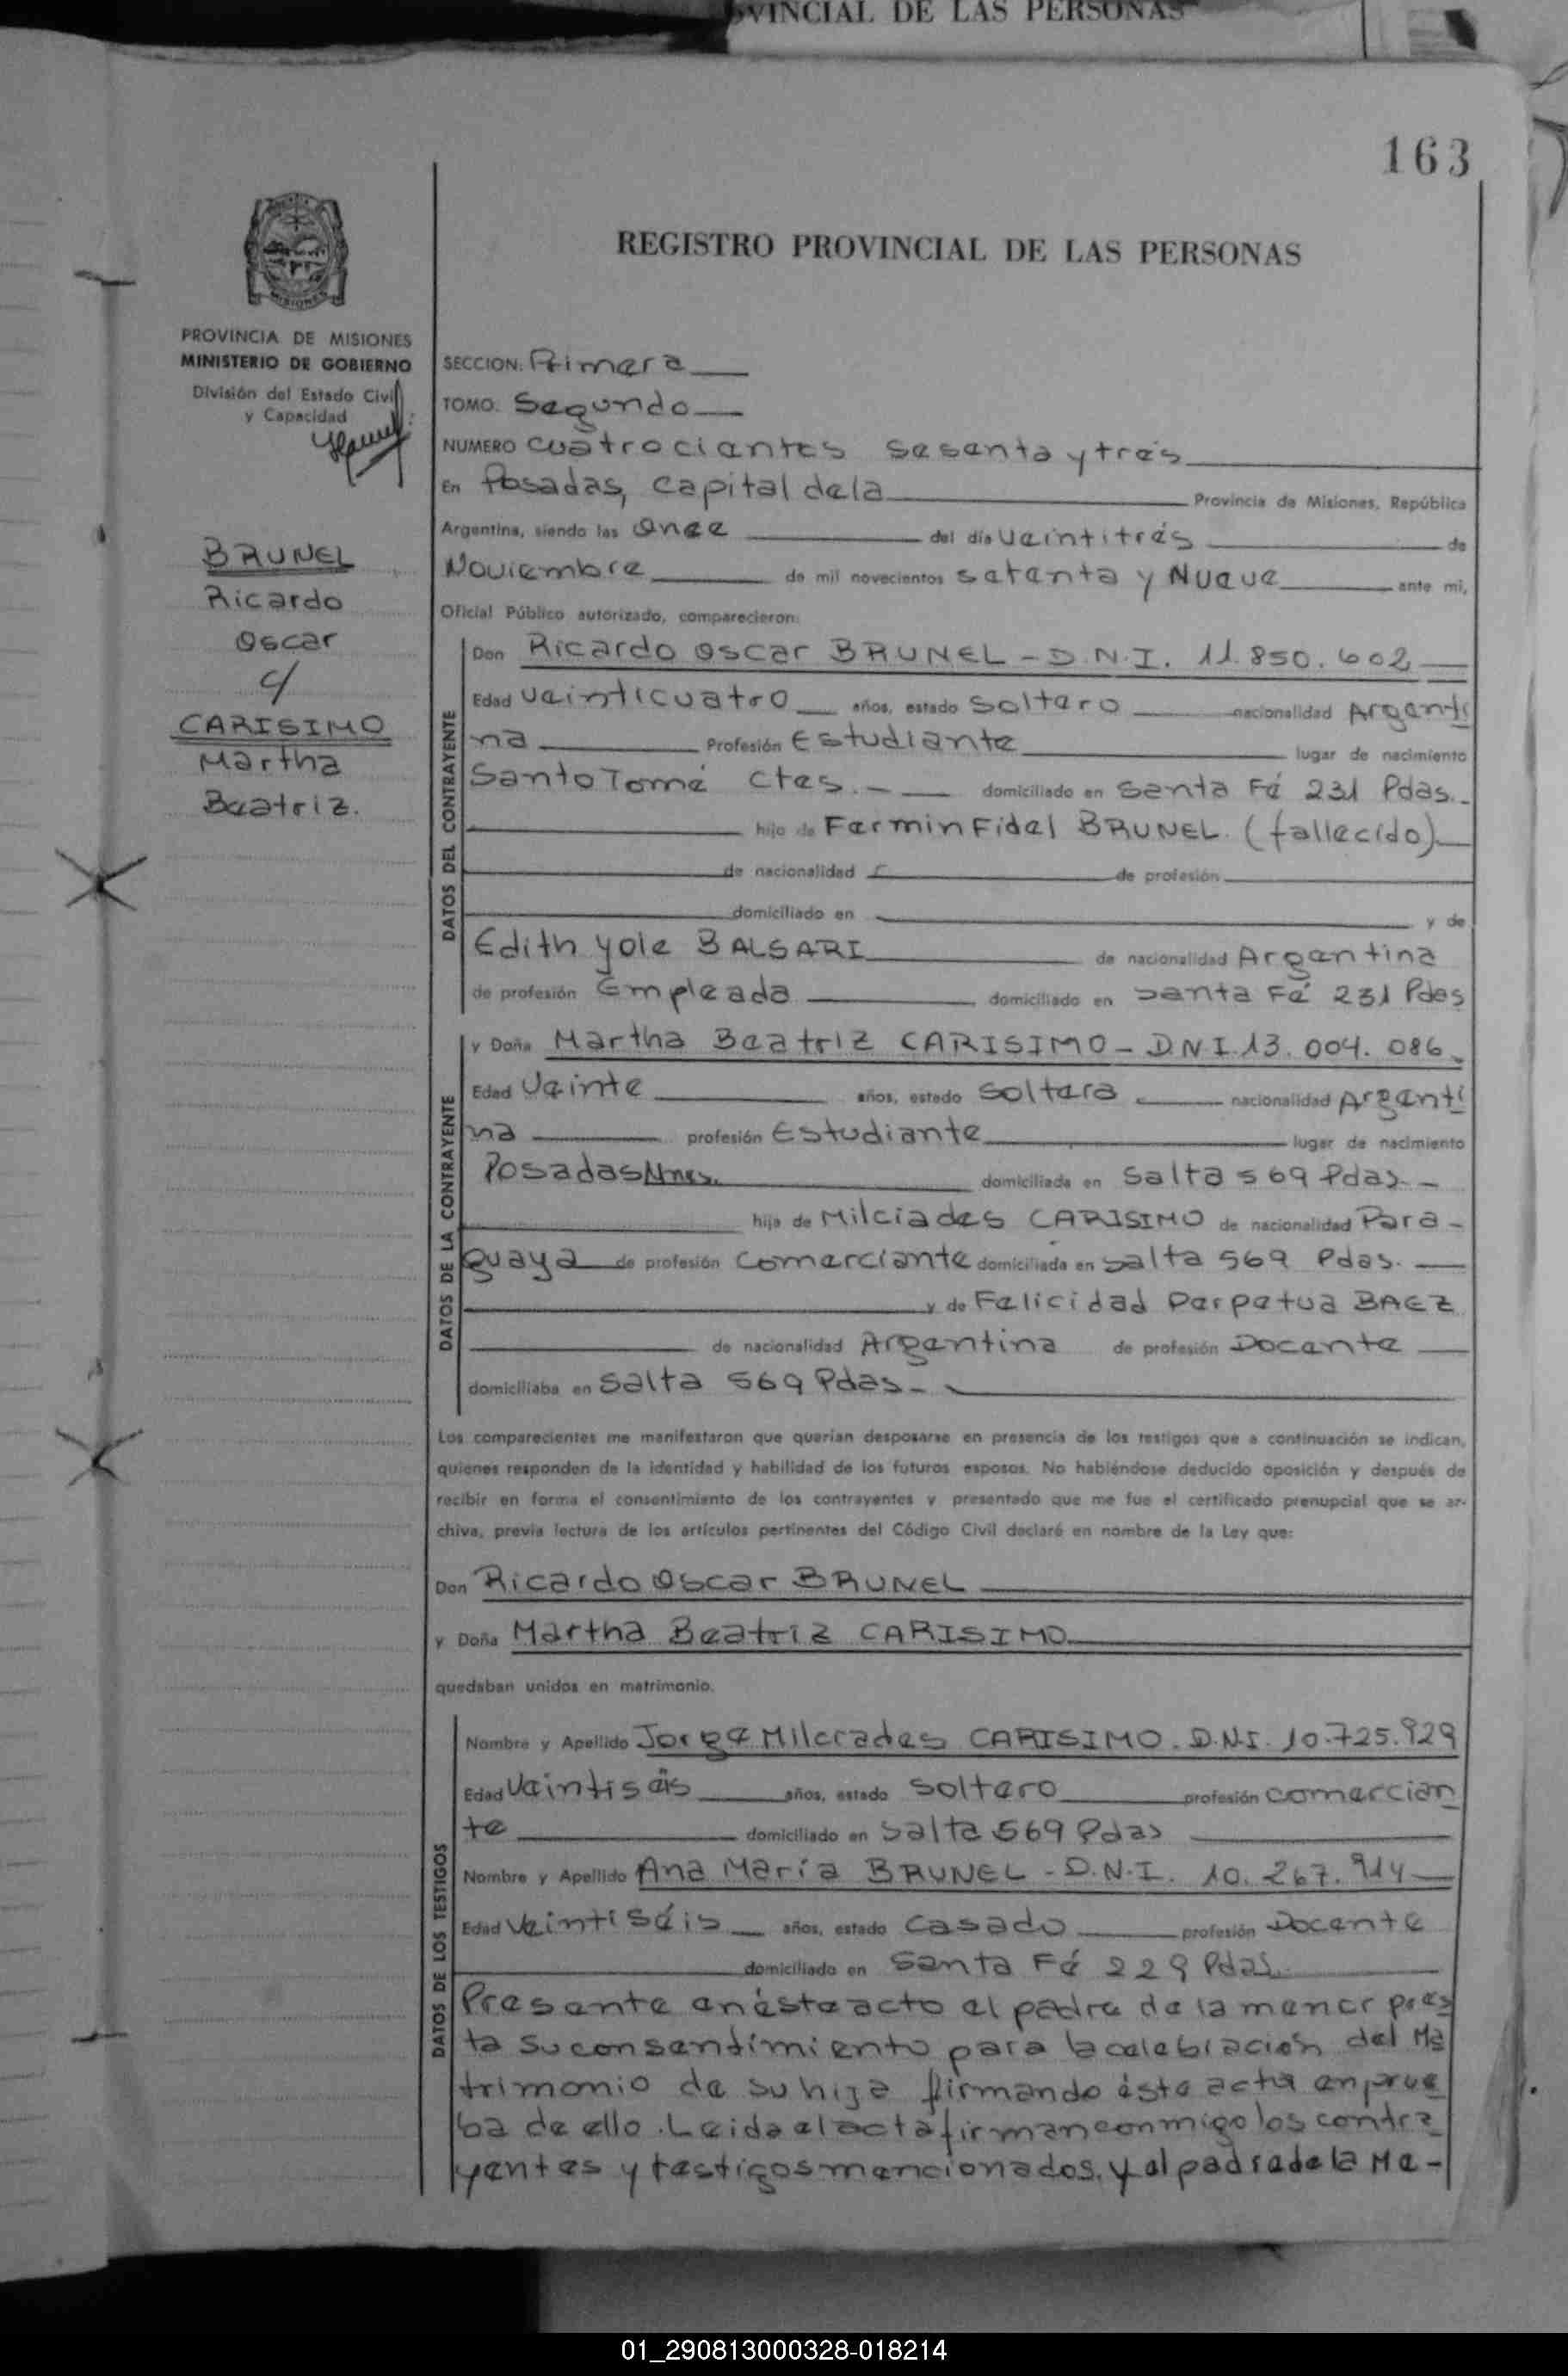 VINCIAL DE LAS PERSONAS
163
MISIONES
PROVINCIA DE MISIONES
MINISTERIO DE GOBIERNO
División del Estado Civil
y Capacidad
BRUNEL
Ricardo
Oscar
c/
CARISIMO
Martha
Beatriz.
REGISTRO PROVINCIAL DE LAS PERSONAS
SECCION: Primera
TOMO: Segundo
NUMERO cuatrocientos sesenta y trés
En Posadas, capital de la Provincia de Misiones, República
Argentina, siendo las Once del día veintitrés de
Noviembre de mil novecientos setenta y Nueve ante mi,
Oficial Público autorizado, comparecieron:
DATOS DEL CONTRAYENTE
Don Ricardo Oscar BRUNEL - D.N.I. 11.850.602
Edad veinticuatro años, estado soltero nacionalidad Argenti
na Profesión Estudiante lugar de nacimiento
Santo Tomé Ctes. - domiciliado en Santa Fé 231 Pdas. -
hijo de Fermin Fidel BRUNEL. (fallecido)
de nacionalidad de profesión
domiciliado en y de
Edith Yole BALSARI de nacionalidad Argentina
de profesión Empleada domiciliado en Santa Fé 231 Pdas
DATOS DE LA CONTRAYENTE
y Doña Martha Beatriz CARISIMO - D.N.I. 13.004.086
Edad Veinte años, estado soltera nacionalidad Argenti
na profesión Estudiante lugar de nacimiento
Posadas Mnes. domiciliada en Salta 569 Pdas. -
hija de Milciades CARISIMO de nacionalidad Para -
guaya de profesión comerciante domiciliada en Salta 569 Pdas.
y de Felicidad Perpetua BAEZ
de nacionalidad Argentina de profesión Docente
domiciliaba en Salta 569 Pdas -
Los comparecientes me manifestaron que querían desposarse en presencia de los testigos que a continuación se indican,
quienes responden de la identidad y habilidad de los futuros esposos. No habiéndose deducido oposición y después de
recibir en forma el consentimiento de los contrayentes y presentado que me fue el certificado prenupcial que se ar-
chiva, previa lectura de los artículos pertinentes del Código Civil declaré en nombre de la Ley que:
Don Ricardo Oscar BRUNEL
y Doña Martha Beatriz CARISIMO
quedaban unidos en matrimonio.
DATOS DE LOS TESTIGOS
Nombre y Apellido Jorge Milcrades CARISIMO. D.N.I. 10.725.929
Edad Veintiséis años, estado soltero profesión comercian
te domiciliado en Salta 569 Pdas
Nombre y Apellido Ana María BRUNEL - D.N.I. 10.267.914
Edad Veintiséis años, estado casado profesión Docente
domiciliado en Santa Fé 229 Pdas
Presente en éste acto el padre de la menor pres
ta su consentimiento para la celebración del Ma
trimonio de su hija firmando ésta acta en prue
ba de ello. Leida el acta firman conmigo los contra
yentes y testigos mencionados, y el padre de la Me -
01_290813000328-018214